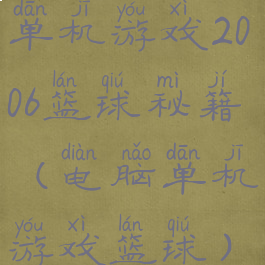 dān jī yóu xì
单机游戏20
lán qiú mì jí
06篮球秘籍
diàn nǎo dān jī
(电脑单机
yóu xì lán qiú
游戏篮球)